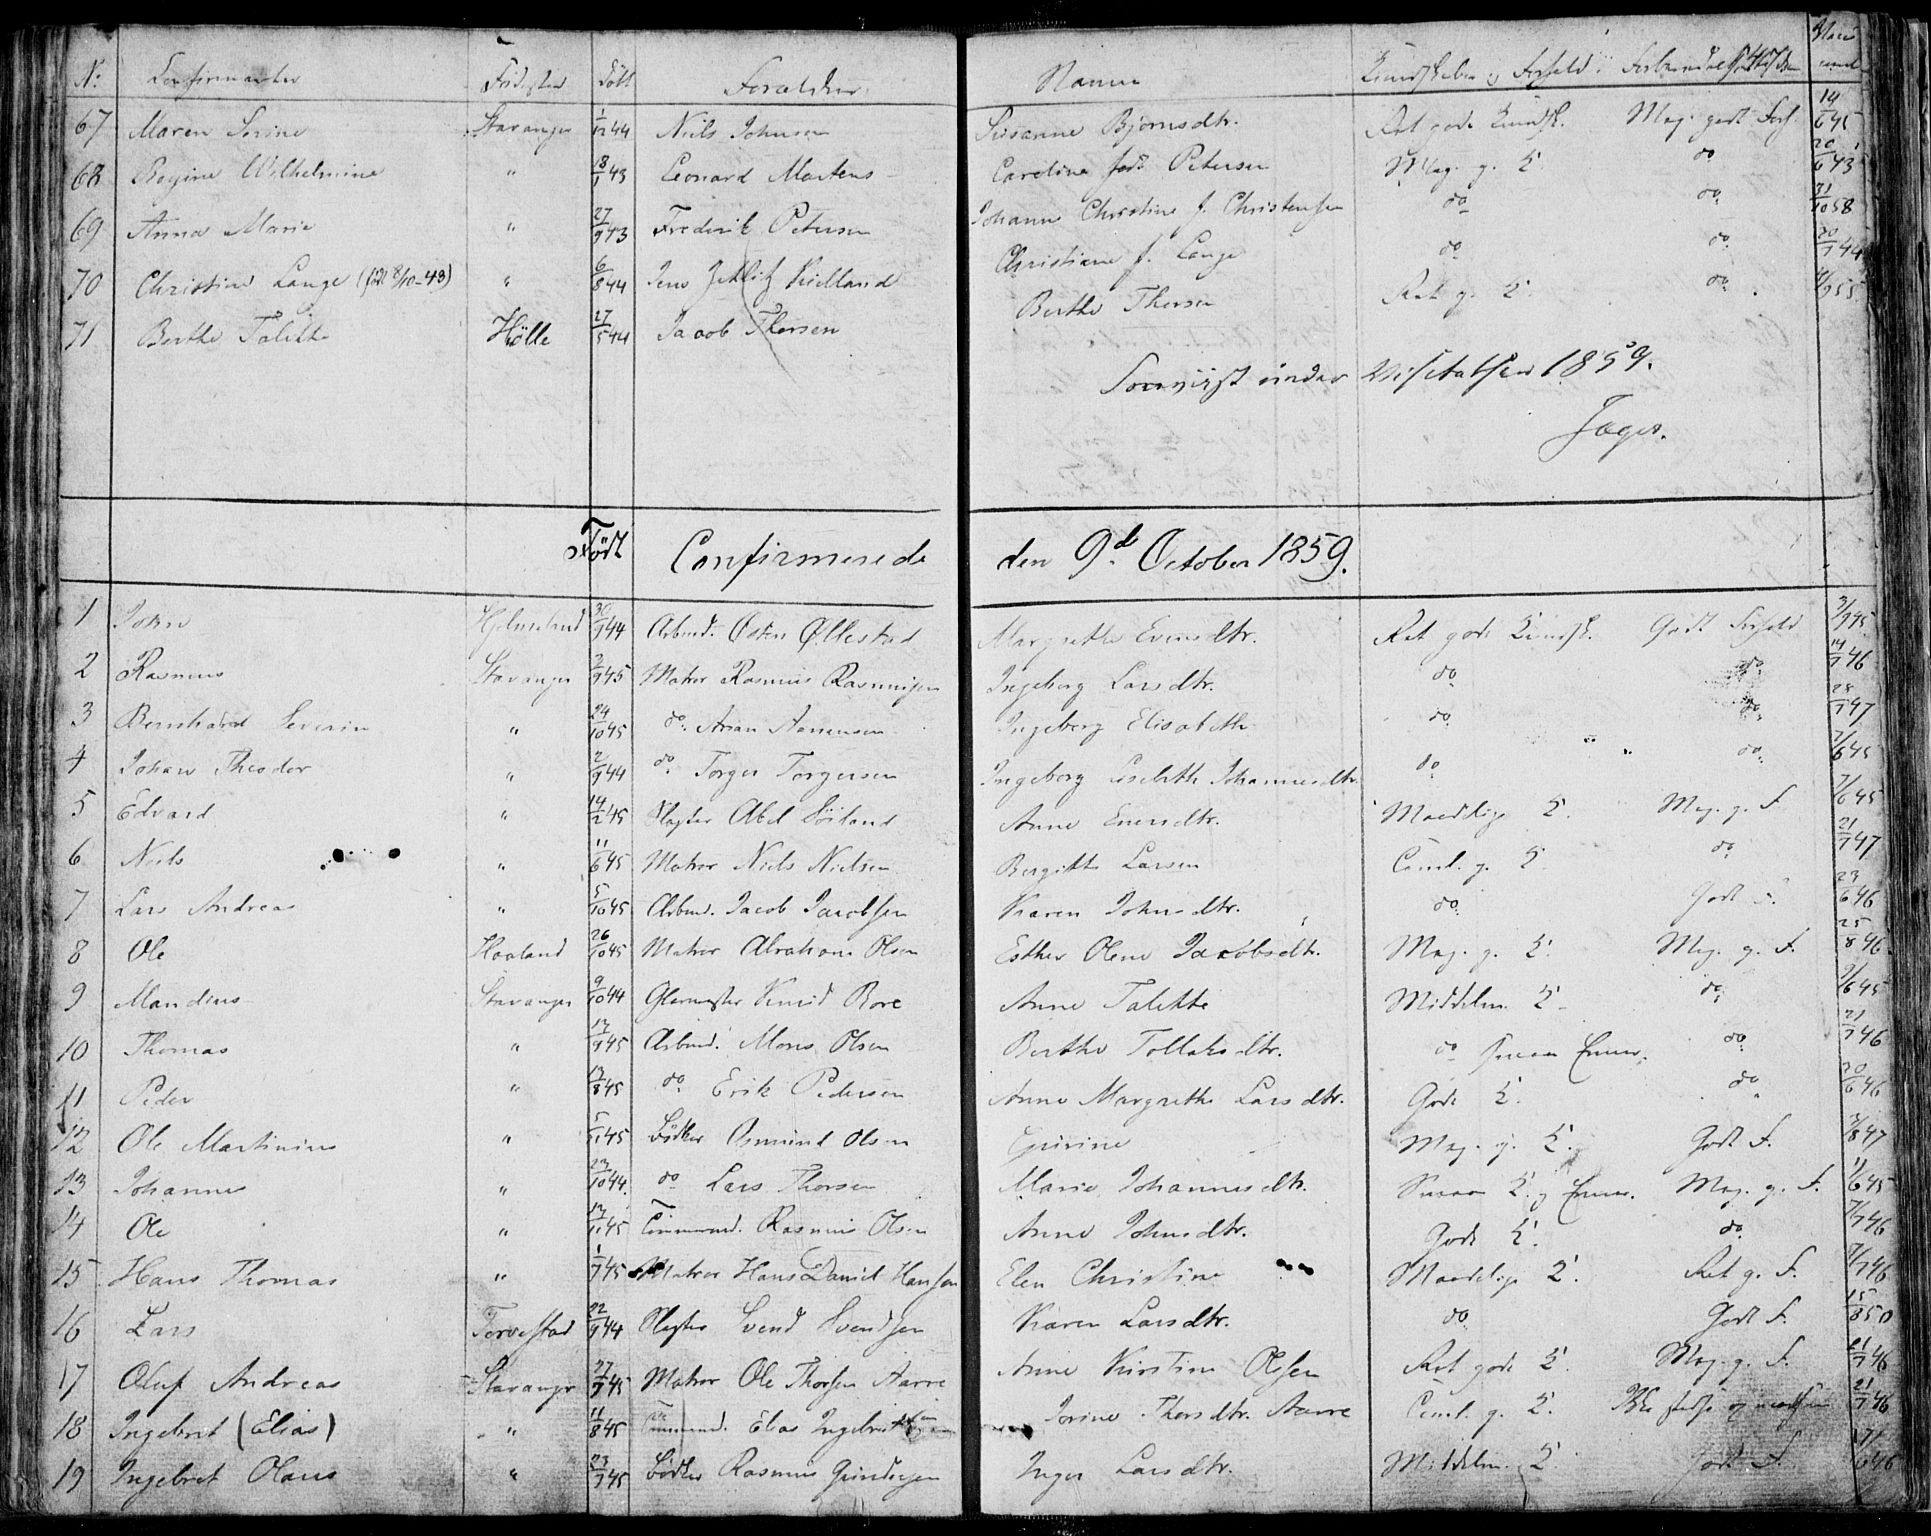 N: Confirmanter Fødested Født Forældre. Navne Kundskaber og Forhold
67 Maren Serine Stavanger 1/12 44 Niels Johnsen Susanne Bjørnsdtr. Ret gode Kundsk. Meg. godt Forh. 14/6 45
68 Regine Wilhelmine " 18/1 43 Leonard Martens Caroline født Petersen Meg. g. K. do 20/6 43
69 Anna Marie " 27/9 43 Frederik Petersen Johanne Christine f. Christensen do do 21/10 58
70 Christine Lange (født 8/10-43) " 6/8 44 Jens Zetlitz Kielland Christiane f. Lange do do 20/7 44
71 Berthe Talette Hölle 27/5 44 Jacob Thorsen Berthe Thorsen Ret g. K. do 55
under Visitatsen 1859.
Født Confirmerede den 9d. October 1859.
1 John Hjelmeland 30/1 44 Arbmd. Østen Øllestad Margrethe Evensdtr. Ret gode Kundsk. Godt Forhold
2 Rasmus Stavanger 2/9 45 Matros Rasmus Rasmusen Ingeborg Larsdtr. do do 14/7 46
3 Bernhard Severin " 24/10 45 do Asmunsen Ingeborg Elisabeth do do 28/7 47
4 Johan Theodor " 2/9 44 do Torger Torgersen Ingeborg Liselith Johannesdtr. do do 7/6 45
5 Edvard " 14/2 45 Slagter Abel Höiland Anne Evensdtr. Maadelige K. Meg. g. F. 7/6 45
6 Niels " 11/6 45 Matros Niels Nielsen Bergitte Larsen Teml. g. K. do 21/7 47
7 Lars Andreas " 5/10 45 Arbmd. Jacob Jacobsen Karen Johnsdtr. do Godt F. 23/6 46
8 Ole Haaland 26/10 45 Matros Abraham Olsen Esther Olene Jacobsdtr. Meg. g. K. Meg. g. F. 25/8 46
9 Mandius Stavanger 9/10 44 Glarmester Knud Bore Anne Talette Middelm. K. do 7/6 45
10 Thomas " 13/9 45 Arbmd. Mons Olsen Berthe Tollaksdtr. do Smaa Evner. do 21/7 46
11 Peder " 13/8 45 do Erik Pedersen Anne Margrethe Larsdtr. Gode K. do 30/6 46
12 Ole Martinius " 5/11 45 Bødker Osmund Olsen Gurine Meg. g. K. Godt F. 3/8 47
13 Johannes " 23/10 44 do Lars Thorsen Marie Johannesdtr. Smaa K. og Evner. Meg. g. F. 1/6 45
14 Ole " 13/11 45 Tømmermd. Rasmus Olsen Anne Johnsdtr. Gode K. do 7/7 46
15 Hans Thomas " 1/7 45 Matros Hans Daniel Hansen Elen Christine Maadelige K. Ret g. F. 7/7 46
16 Lars Torvestad 22/9 44 Slagter Svend Svendsen Karen Larsdtr. do Godt F. 15/8 50
17 Oluf Andreas Stavanger 27/7 45 Matros Ole Thorsen Aarre Anne Kirstine Olsen Ret gode K. Meg. g. F. 21/7 46
18 Ingebret (Elias) " 11/8 45 Tømmermd. Elias Ingebretsen Jorine Thorsdtr. Aarre Teml. g. K. 21/7 46
19 Ingebret Olaus " 23/7 45 Bødker Rasmus Inger Larsdtr. Middelm. K. Godt F.